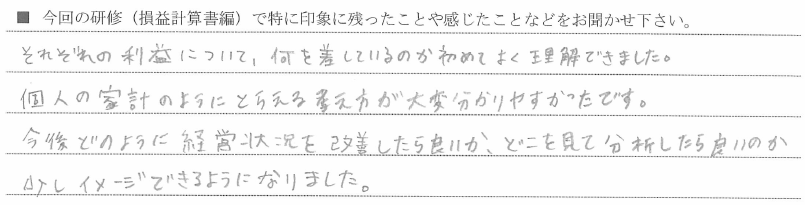 ■ 今回の研修（損益計算書編）で特に印象に残ったことや感じたことなどをお聞かせ下さい。
それぞれの利益について、何を差しているのか初めてよく理解できました。
個人の家計のようにとらえる考え方が大変分かりやすかったです。
今後どのように経営状況を改善したら良いか、どこを見て分析したら良いのか
少しイメージできるようになりました。